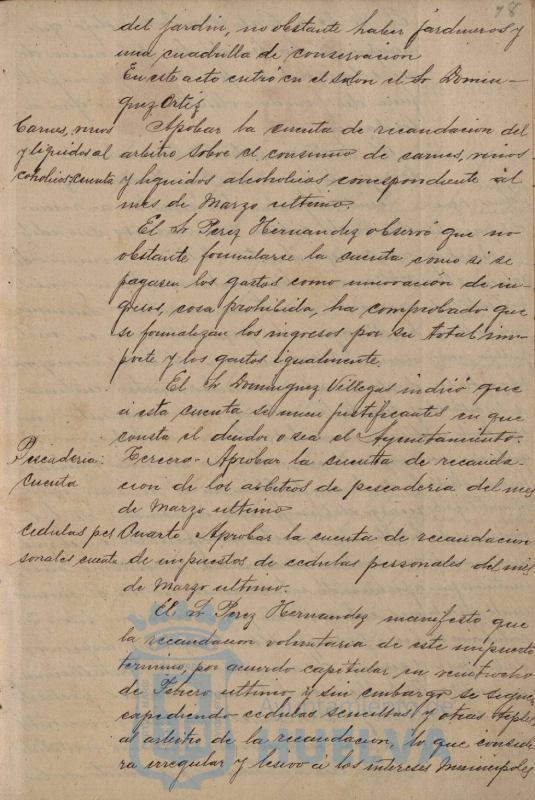 78
del jardin, no obstante haber jardineros y
una cuadrilla de conservacion
En este acto entró en el salon el Sr Domin-
guez Ortiz
Carnes, vinos
y liquidos al
coholicos=Cuenta
Aprobar la cuenta de recaudacion del
arbitro sobre el consumo de carnes, vinos
y liquidos alcoholicos correspondiente al
mes de Marzo ultimo.
El Sr Perez Hernandez observó que no
obstante formularse la cuenta como si se
pagasen los gastos como minoración de in-
gresos, cosa prohibida, ha comprobado que
se formalizan los ingresos por su total im-
porte y los gastos igualmente.
El Sr Dominguez Villegas indicó que
á esta cuenta se unen justificantes en que
consta el deudor o sea el Ayuntamiento.
Pescaderia:
Cuenta
Tercero- Aprobar la cuenta de recauda-
cion de los arbitros de pescaderia del mes
de Marzo ultimo
Cedulas per
sonales cuenta
Cuarto. Aprobar la cuenta de recaudacion
de impuestos de cedulas personales del mes
de Marzo ultimo.
El Sr Perez Hernandez manifestó que
la recaudacion voluntaria de este impuesto
termino, por acuerdo capitular en veintiocho
de Febrero ultimo y sin embargo se siguen
expediendo cedulas sencillas y otras triples
al arbitrio de la recaudacion, lo que conside
ra irregular y lesivo á los intereses Municipales
Ayuntamiento de
HUELVA